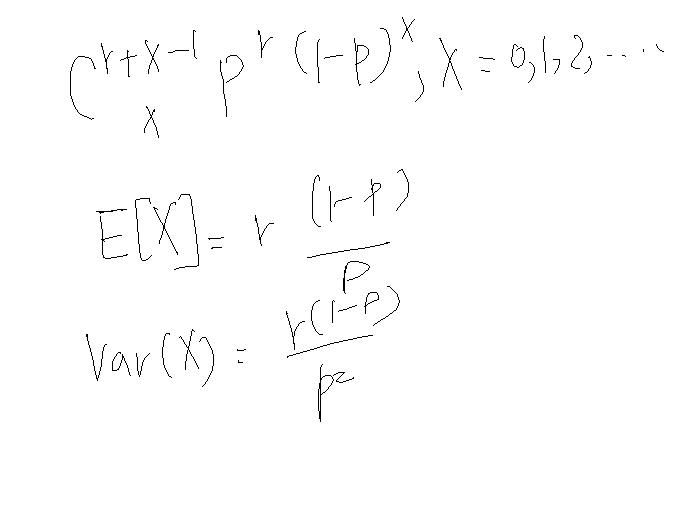 C^{r+x-1}_{x} p^r (1-p)^x, X = 0,1,2,.....
E[X] = r \frac{(1-p)}{p}
Var(X) = \frac{r(1-p)}{p^2}